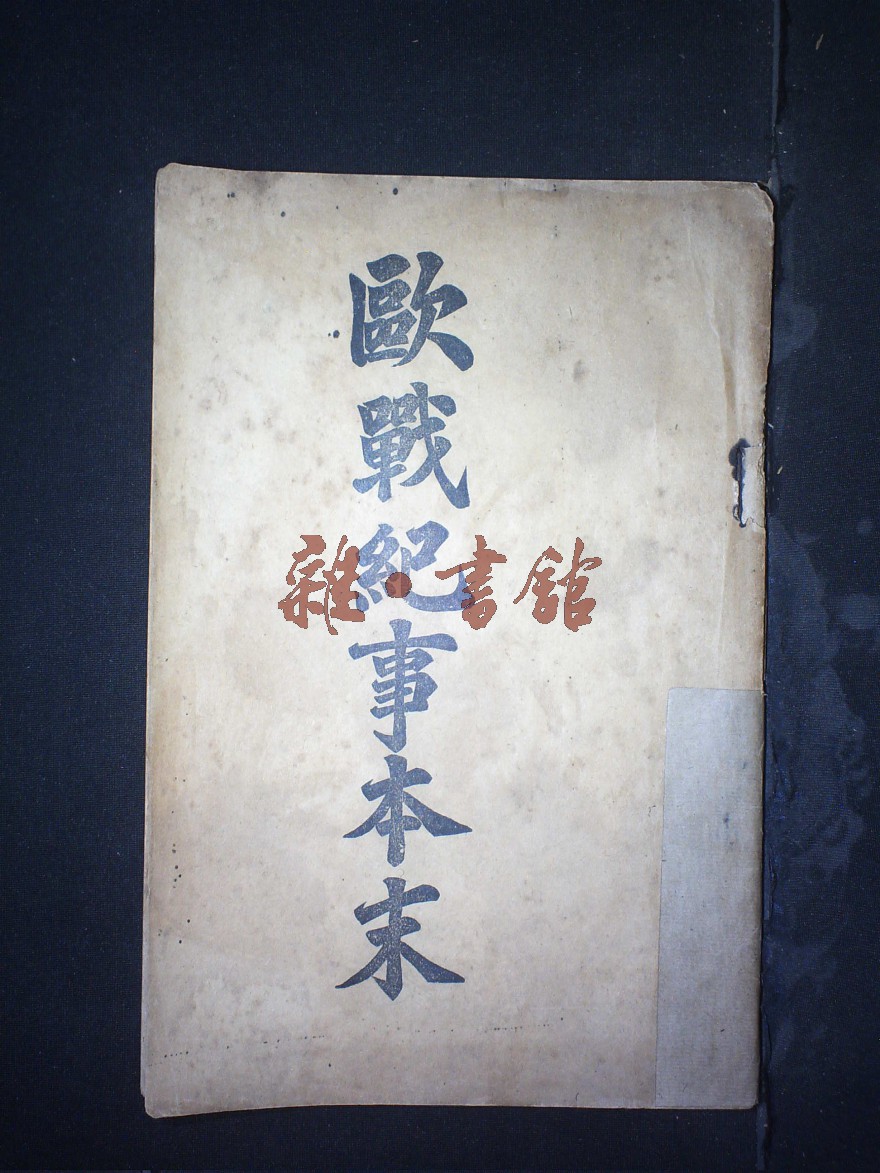 歐戰紀事本末
雜·書館